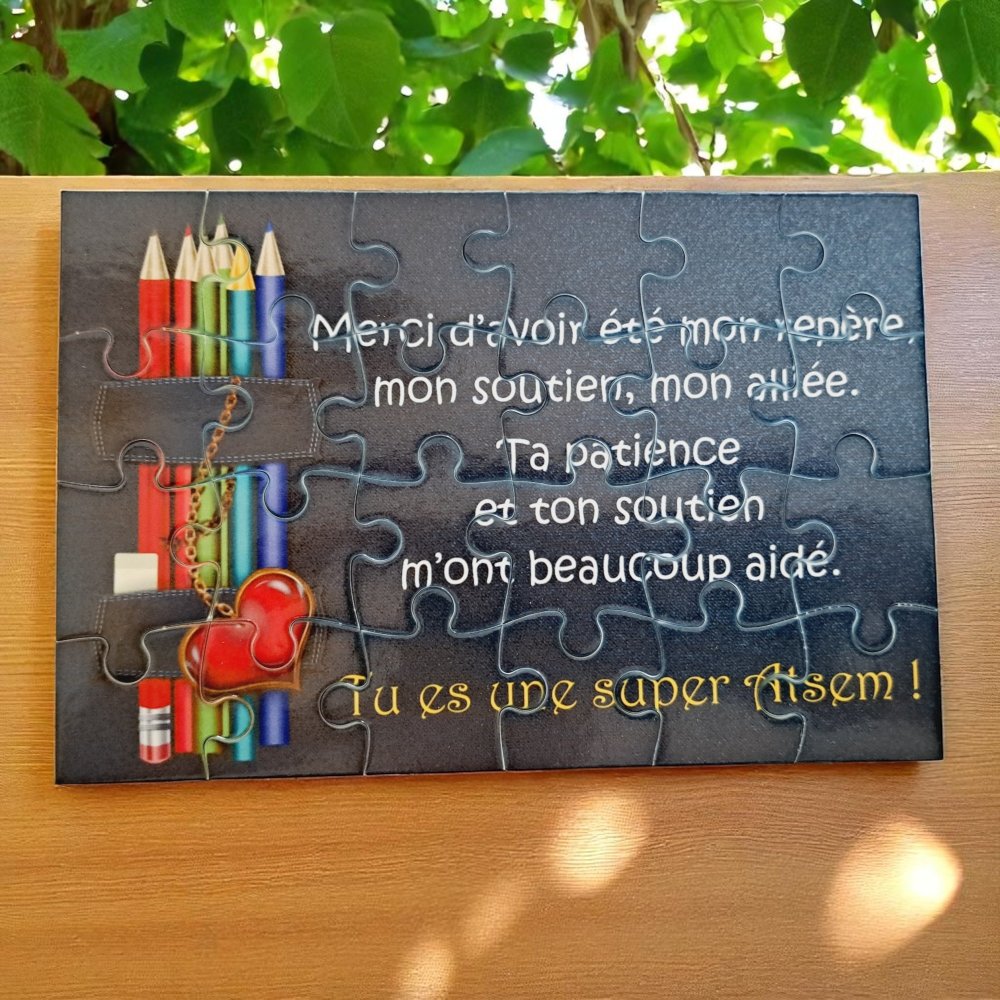 Merci d'avoir été mon repère,
mon soutien, mon alliée.
Ta patience
et ton soutien
m'ont beaucoup aidé.
Tu es une super Atsem !